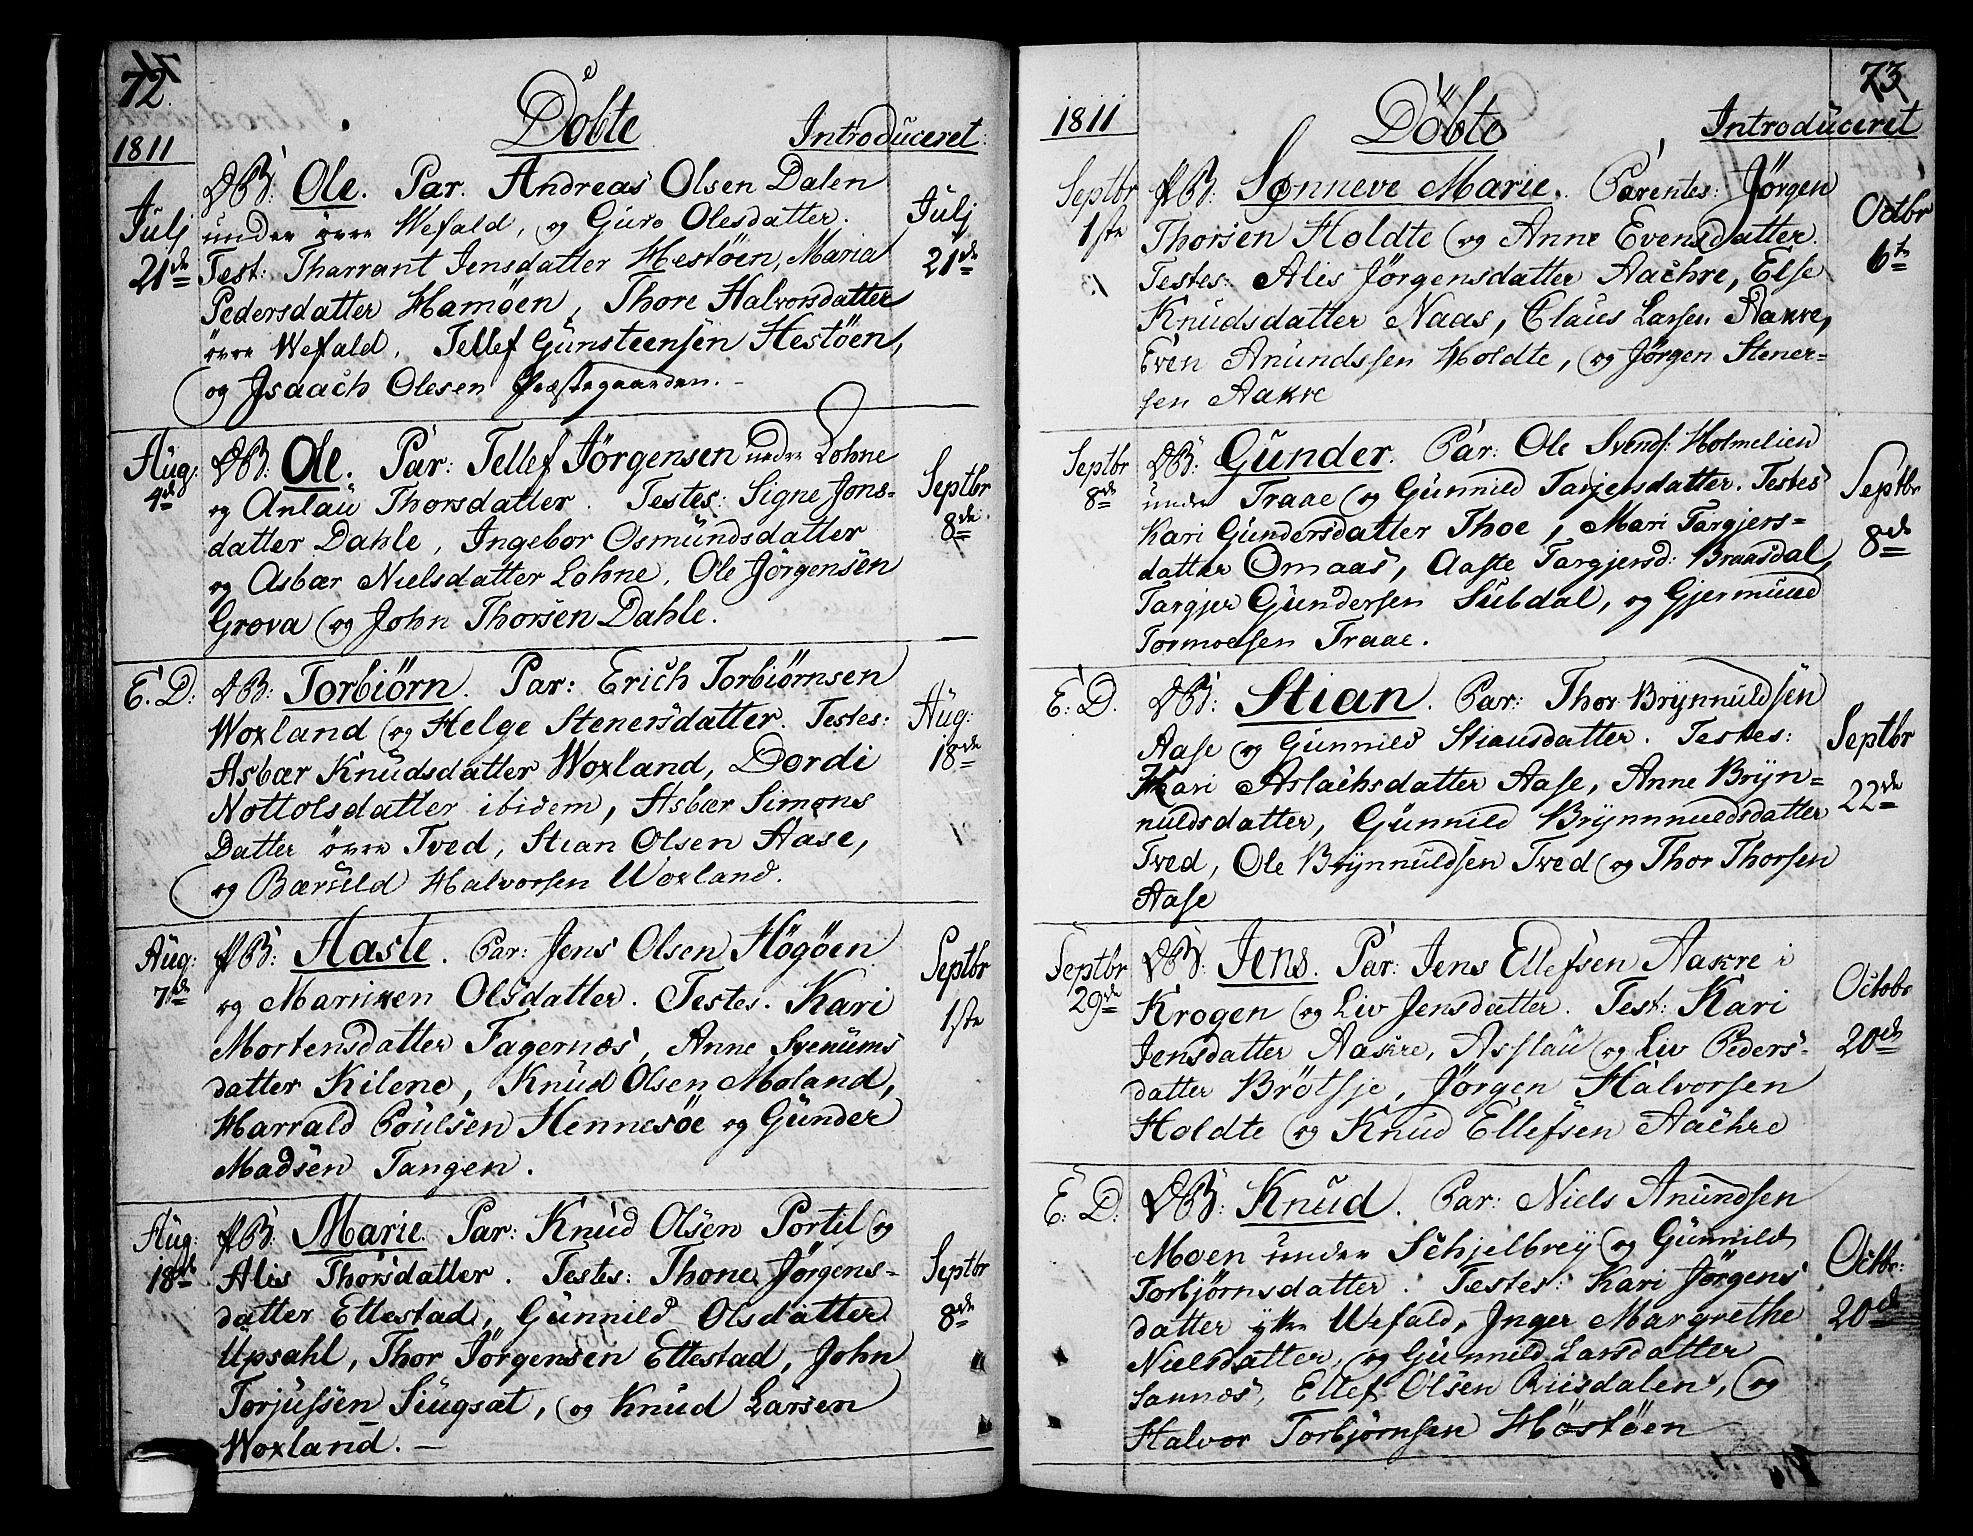 72.
Döbte
Introduceret:
1811
Julj
21de
DB: Ole. Par. Andreas Olsen Dalen
under øvre Wefald, og Guro Olesdatter.
Test: Tharrant Jensdatter Hestöen, Maria
Pedersdatter Hamöen, Thore Halvorsdatter
øvre Wefald, Tellef Gunsteensen Hestöen,
og Jsaach Olesen Præstegaarden. -
Julj
21de
Aug:
4de
DB: Ole. Par: Tellef Jörgensen nedre Lohne
og Anlau Thorsdatter. Testes: Signe Jons-
datter Dahle, Ingebor Osmundsdatter
og Asbær Nielsdatter Lohne, Ole Jörgensen
Grova og John Thorsen Dahle.
Septbr
8de
E. D:
DB: Torbiörn. Par: Erich Torbiörnsen
Woxland og Helge Stenersdatter. Testes:
Asbær Knudsdatter Woxland, Dordi
Nottolsdatter ibidem, Asbær Simons
Datter øvre Tved, Stian Olsen Aase,
og Bæruld Halvorsen Woxland.
Aug:
18de
Aug:
7de
PB: Aaste. Par: Jens Olsen Högöen
og Marniken Olsdatter. Testes. Kari
Mortensdatter Fagernæs, Anne Svenums
datter Kilene, Knud Olsen Moland,
Harrald Poulsen Hennesöe og Gunder
Madsen Tangen.
Septbr
1ste
Aug:
18de
PB: Marie. Par: Knud Olsen Portil og
Alis Thorsdatter. Testes: Thone Jörgens-
datter Ettestad, Gunnild Olsdatter
Upsahl, Thor Jörgensen Ettestad, John
Torjussen Siugsat, og Knud Larsen
Woxland. -
Septbr
8de
73
1811
Döbte
Introduceret
Septbr
1ste
PB: Sønneve Marie. Parentes: Jörgen
Thorsen Holdte og Anne Evensdatter.
Testes: Alis Jörgensdatter Aachre, Else
Knudsdatter Naas, Claus Larsen Aakre,
Even Anundssen Holdte, og Jörgen Stener-
sen Aakre
Octbr
6te
Septbr
8de
DB: Gunder. Par: Ole Svends: Holmelien
under Traae og Gunnild Tarjersdatter. Testes
Kari Gundersdatter Thoe, Mari Targjers-
datter Omaas, Aaste Targjersd: Braasdal,
Targjer Gundersen Subdal, og Gjermund
Tormodsen Traae.
Septbr
8de
E. D.
DB: Stian. Par: Thor Brÿnnuldsen
Aase og Gunnild Stiansdatter. Testes:
Kari Aslachsdatter Aase, Anne Brÿn-
nuldsdatter, Gunnild Brÿnnnuldsdatter
Tved, Ole Brÿnnuldsen Tved og Thor Thorsen
Aase
Septbr
22de
Septbr
29de
DB: Jens. Par: Jens Ellefsen Aakre i
Krogen og Liv Jensdatter. Test: Kari
Jensdatter Aakre, Asslau og Liv Peders-
datter Brötsje, Jörgen Halvorsen
Holdte og Knud Ellefsen Aachre
Octobr
20de
E. D:
DB: Knud. Par: Niels Anundsen
Moen under Schjelbrey og Gunnild
Torbjørnsdatter. Testes: Kari Jörgens
datter ytre Wefald, Jnger Margrethe
Nielsdatter, og Gunnild Larsdatter
Sannæs, Ellef Olsen Riisdalen, og
Halvor Torbjørnsen Höstöen
Octbr:
20de